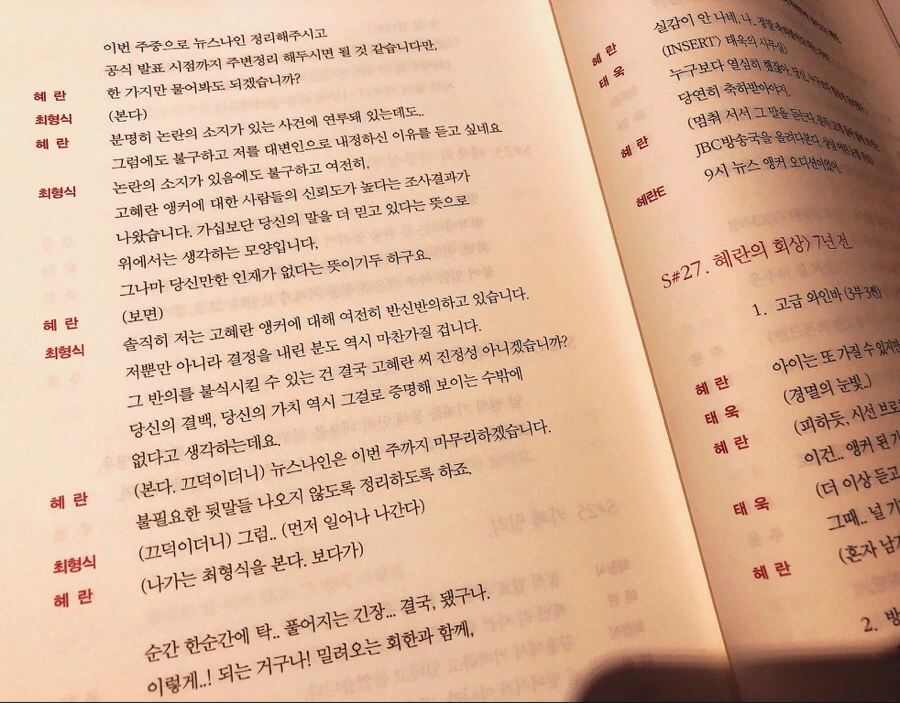 이번 주중으로 뉴스나인 정리해주시고
공식 발표 시점까지 주변정리 해두시면 될 것 같습니다만,
혜 란 한 가지만 물어봐도 되겠습니까?
최형식 (본다)
혜 란 분명히 논란의 소지가 있는 사건에 연루돼 있는데도..
그럼에도 불구하고 저를 대변인으로 내정하신 이유를 듣고 싶네요
최형식 논란의 소지가 있음에도 불구하고 여전히,
고혜란 앵커에 대한 사람들의 신뢰도가 높다는 조사결과가
나왔습니다. 가십보단 당신의 말을 더 믿고 있다는 뜻으로
위에서는 생각하는 모양입니다,
그나마 당신만한 인재가 없다는 뜻이기두 하구요.
혜 란 (보면)
최형식 솔직히 저는 고혜란 앵커에 대해 여전히 반신반의하고 있습니다.
저뿐만 아니라 결정을 내린 분도 역시 마찬가질 겁니다.
그 반의를 불식시킬 수 있는 건 결국 고혜란 씨 진정성 아니겠습니까?
당신의 결백, 당신의 가치 역시 그걸로 증명해 보이는 수밖에
없다고 생각하는데요.
혜 란 (본다. 끄덕이더니) 뉴스나인은 이번 주까지 마무리하겠습니다.
불필요한 뒷말들 나오지 않도록 정리하도록 하죠.
최형식 (끄덕이더니) 그럼.. (먼저 일어나 나간다)
혜 란 (나가는 최형식을 본다. 보다가)
순간 한순간에 탁.. 풀어지는 긴장... 결국, 됐구나.
이렇게..! 되는 거구나! 밀려오는 회한과 함께,
실감이 안 나네, 나.. 정말
혜 란 (INSERT> 태욱의 사무실)
태 욱 누구보다 열심히 했잖아, 당신,
당연히 축하받아야지.
혜 란 (멈춰 서서 그 말을 듣는다.
JBC방송국을 올려다본다.
혜란E 9시 뉴스 앵커 오디션이었어.
S#27. 혜란의 회상> 7년 전
1. 고급 와인바 (3부 3씬)
혜 란 아이는 또 가질 수 있지만
태 욱 (경멸의 눈빛.)
혜 란 (피하듯, 시선
이건.. 앵커 된
(더 이상 듣고
태 욱 그때.. 널
혜 란 (혼자
2.